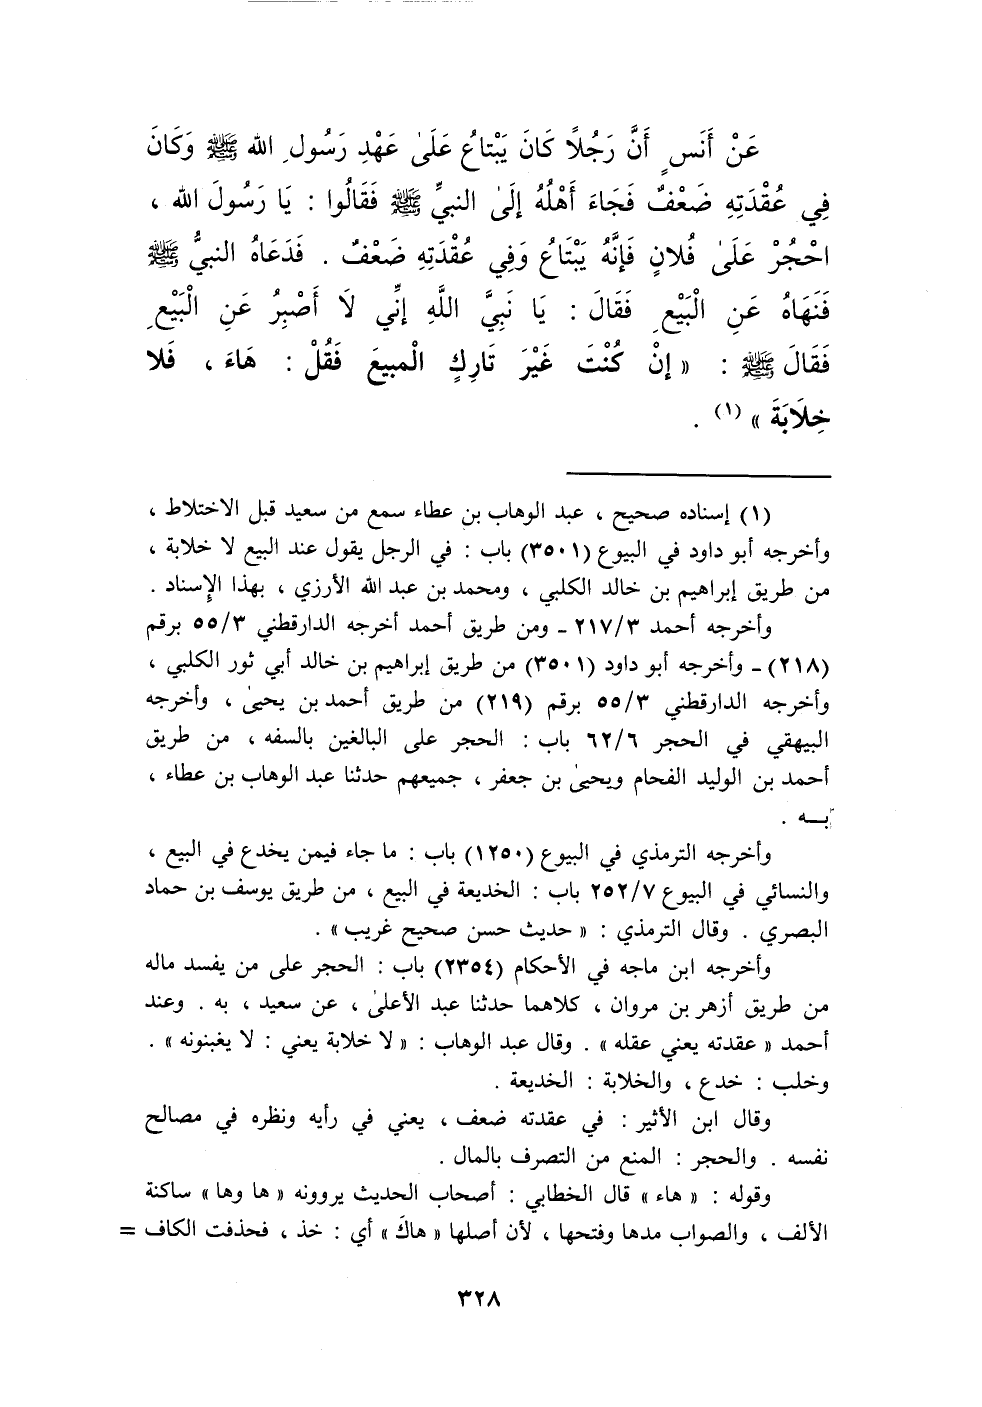 عَنْ أَنَسٍ أَنَّ رَجُلاً كَانَ يَبْتاعُ عَلَىٰ عَهْدِ رَسُولِ الله ﷺ وَكَانَ
فِي عُقْدَتِهِ ضَعْفٌ فَجَاءَ أَهْلُهُ إِلَىٰ النبيِّ ﷺ فَقَالُوا : يَا رَسُولَ الله ،
احْجُرْ عَلَىٰ فُلانٍ فَإِنَّهُ يَبْتَاعُ وَفِي عُقْدَتِهِ ضَعْفٌ . فَدَعَاهُ النبيُّ ﷺ
فَنَهَاهُ عَنِ الْبَيْعِ فَقَالَ : يَا نَبِيَّ اللَّهِ إِنِّي لَا أَصْبِرُ عَنِ الْبَيْعِ
فَقَالَ ﷺ : « إِنْ كُنْتَ غَيْرَ تَارِكٍ الْمبِيعَ فَقُلْ : هَاءَ ، فَلا
خِلَابَةَ » (١) .
(١) إسناده صحيح ، عبد الوهاب بن عطاء سمع من سعيد قبل الاختلاط ،
وأخرجه أبو داود في البيوع (٣٥٠١) باب : في الرجل يقول عند البيع لا خلابة ،
من طريق إبراهيم بن خالد الكلبي ، ومحمد بن عبد الله الأرزي ، بهذا الإِسناد .
وأخرجه أحمد ٢١٧/٣ ـ ومن طريق أحمد أخرجه الدارقطني ٥٥/٣ برقم
(٢١٨) ـ وأخرجه أبو داود (٣٥٠١) من طريق إبراهيم بن خالد أبي ثور الكلبي ،
وأخرجه الدارقطني ٥٥/٣ برقم (٢١٩) من طريق أحمد بن يحيىٰ ، وأخرجه
البيهقي في الحجر ٦٢/٦ باب : الحجر على البالغين بالسفه ، من طريق
أحمد بن الوليد الفحام ويحيىٰ بن جعفر ، جميعهم حدثنا عبد الوهاب بن عطاء ،
بـــه .
وأخرجه الترمذي في البيوع (١٢٥٠) باب : ما جاء فيمن يخدع في البيع ،
والنسائي في البيوع ٢٥٢/٧ باب : الخديعة في البيع ، من طريق يوسف بن حماد
البصري . وقال الترمذي : « حديث حسن صحيح غريب» .
وأخرجه ابن ماجه في الأحكام (٢٣٥٤) باب : الحجر على من يفسد ماله
من طريق أزهر بن مروان ، كلاهما حدثنا عبد الأعلىٰ ، عن سعيد ، به . وعند
أحمد « عقدته يعني عقله» . وقال عبد الوهاب : «لا خلابة يعني : لا يغبنونه» .
وخلب : خدع ، والخلابة : الخديعة .
وقال ابن الأثير : في عقدته ضعف ، يعني في رأيه ونظره في مصالح
نفسه . والحجر : المنع من التصرف بالمال .
وقوله : « هاء» قال الخطابي : أصحاب الحديث يروونه « ها وها» ساكنة
الألف ، والصواب مدها وفتحها ، لأن أصلها « هاكَ» أي : خذ ، فحذفت الكاف =
٣٢٨